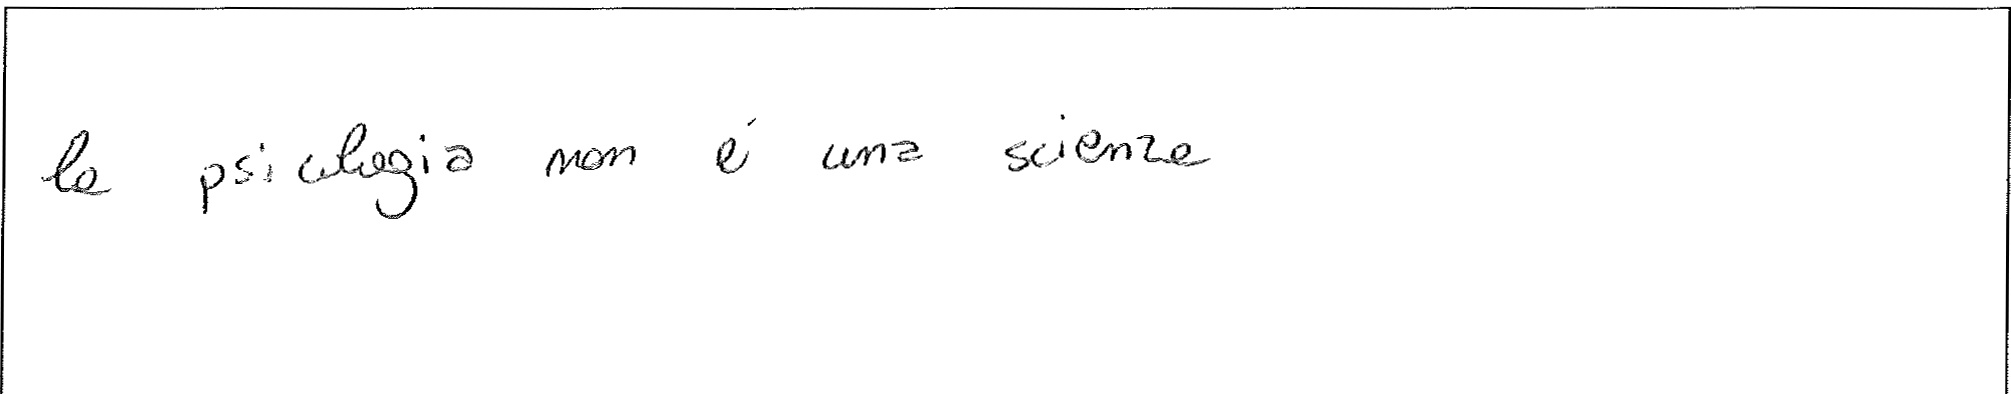 la psicologia non è una scienza